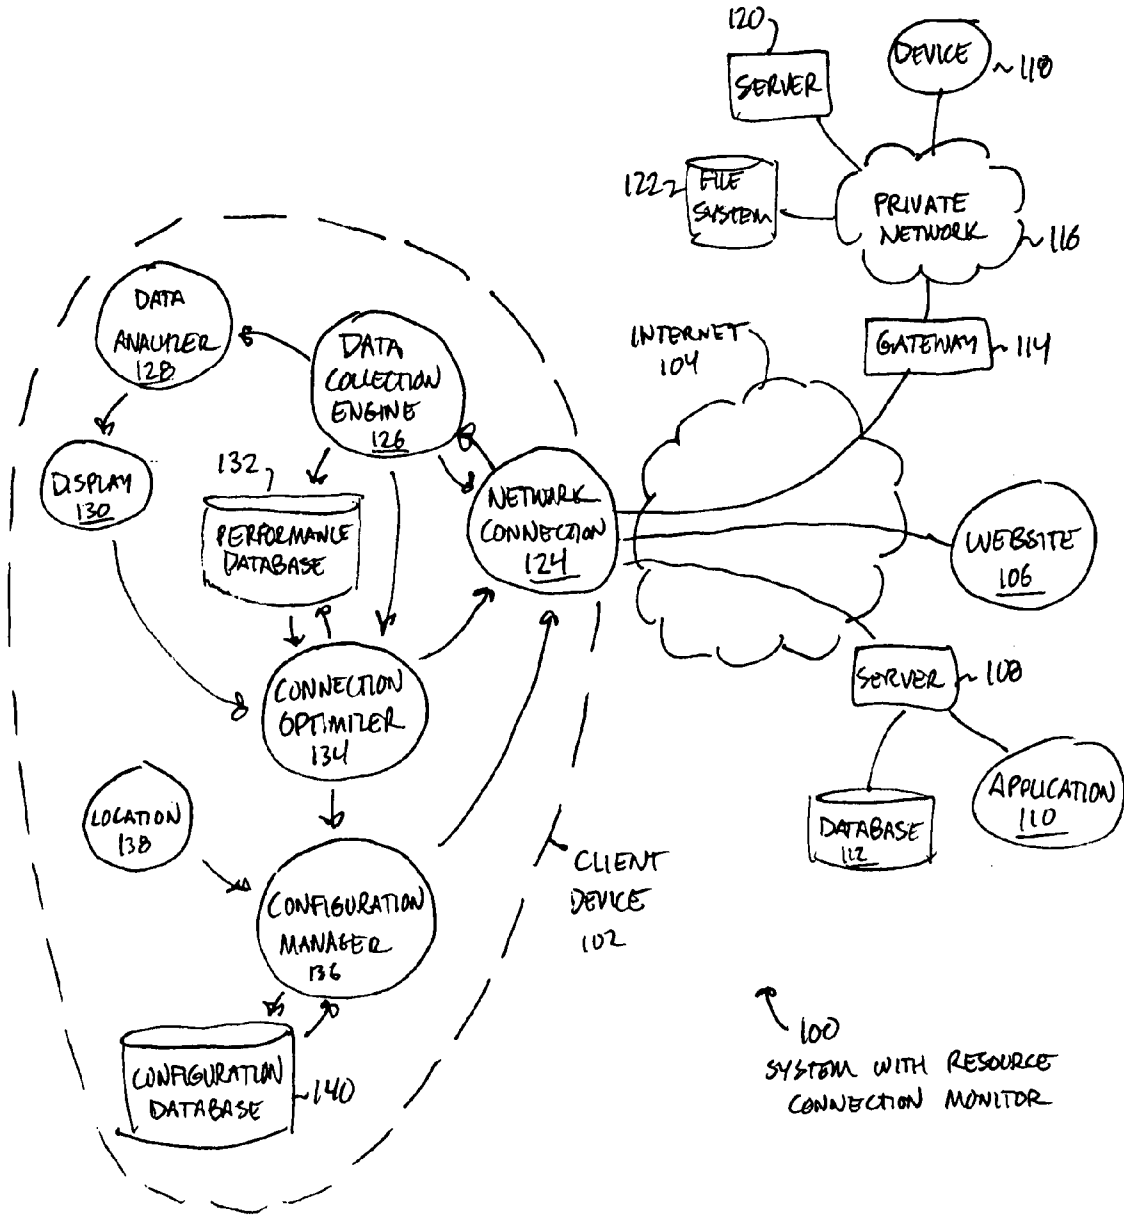 120
SERVER
DEVICE
118
122
FILE
SYSTEM
PRIVATE
NETWORK
116
GATEWAY
114
INTERNET
104
DATA
ANALYZER
128
DATA
COLLECTION
ENGINE
126
DISPLAY
130
132
PERFORMANCE
DATABASE
NETWORK
CONNECTION
124
WEBSITE
106
SERVER
108
CONNECTION
OPTIMIZER
134
APPLICATION
110
DATABASE
112
LOCATION
138
CONFIGURATION
MANAGER
136
CLIENT
DEVICE
102
CONFIGURATION
DATABASE
140
100
SYSTEM WITH RESOURCE
CONNECTION MONITOR